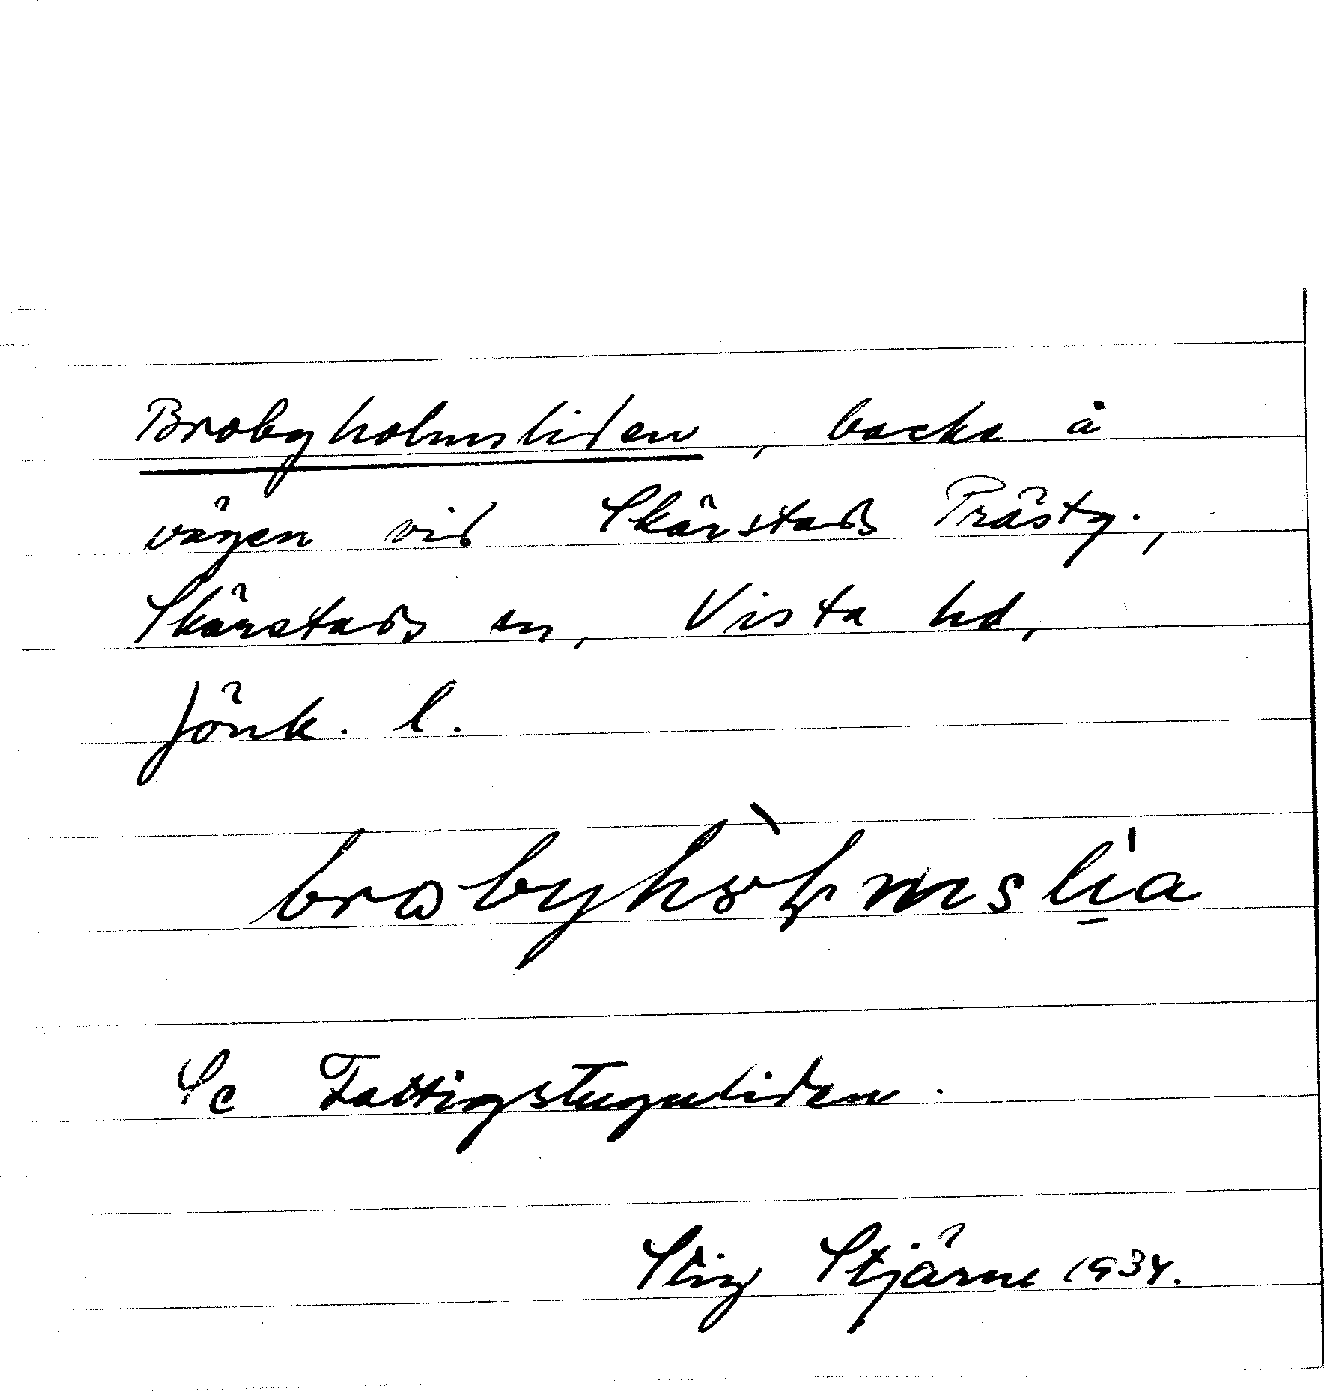 Brobyholmsliden, backe å
vägen vid Skärstads Prästg.,
Skärstads sn, Vista hd,
Jönk. l.
Se Fattigstuguliden.
Stig Stjärne 1934.